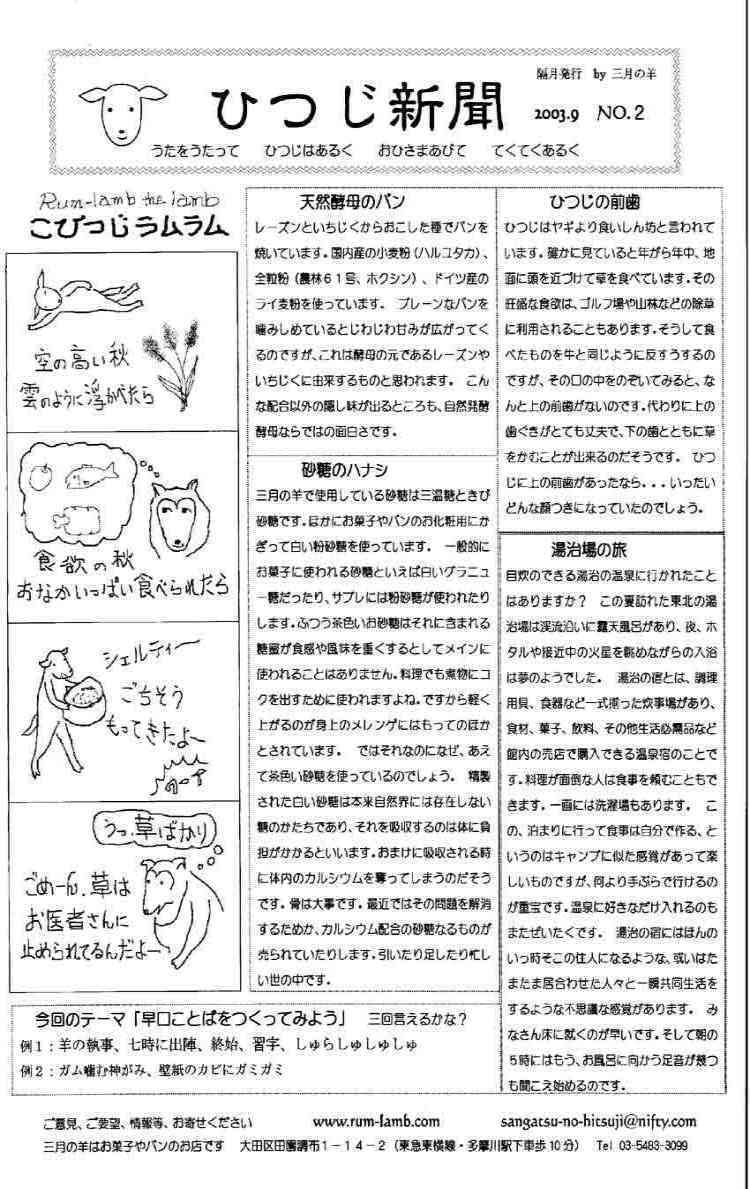 隔月発行 by 三月の羊
ひつじ新聞
2003.9 NO.2
うたをうたって ひつじはあるく おひさまあびて てくてくあるく
Rum-lamb the lamb
こひつじラムラム
空の高い秋
雲のように浮かべたら
食欲の秋
おなかいっぱい食べられたら
シェルティー
ごちそう
もってきたよー
うっ、草ばかり
ごめーん、草は
お医者さんに
止められてるんだよー
天然酵母のパン
レーズンといちじくからおこした種でパンを
焼いています。国内産の小麦粉（ハルユタカ）、
全粒粉（農林６１号、ホクシン）、ドイツ産の
ライ麦粉を使っています。 プレーンなパンを
噛みしめているとじわじわ甘みが広がってく
るのですが、これは酵母の元であるレーズンや
いちじくに由来するものと思われます。 こん
な配合以外の隠し味が出るところも、自然発酵
酵母ならではの面白さです。
砂糖のハナシ
三月の羊で使用している砂糖は三温糖ときび
砂糖です。ほかにお菓子やパンのお化粧用にか
ぎって白い粉砂糖を使っています。 一般的に
お菓子に使われる砂糖といえば白いグラニュ
ー糖だったり、サブレには粉砂糖が使われたり
します。ふつう茶色いお砂糖はそれに含まれる
糖蜜が食感や風味を重くするとしてメインに
使われることはありません。料理でも煮物にコ
クを出すために使われますよね。ですから軽く
上がるのが身上のメレンゲにはもってのほか
とされています。 ではそれなのになぜ、あえ
て茶色い砂糖を使っているのでしょう。 精製
された白い砂糖は本来自然界には存在しない
糖のかたちであり、それを吸収するのは体に負
担がかかるといいます。おまけに吸収される時
に体内のカルシウムを奪ってしまうのだそう
です。骨は大事です。最近ではその問題を解消
するためか、カルシウム配合の砂糖なるものが
売られていたりします。引いたり足したり忙し
い世の中です。
ひつじの前歯
ひつじはヤギより食いしん坊と言われて
います。確かに見ていると年がら年中、地
面に頭を近づけて草を食べています。その
旺盛な食欲は、ゴルフ場や山林などの除草
に利用されることもあります。そうして食
べたものを牛と同じように反すうするの
ですが、その口の中をのぞいてみると、な
んと上の前歯がないのです。代わりに上の
歯ぐきがとても丈夫で、下の歯とともに草
をかむことが出来るのだそうです。 ひつ
じに上の前歯があったなら．．．いったい
どんな顔つきになっていたのでしょう。
湯治場の旅
自炊のできる湯治の温泉に行かれたこと
はありますか？ この夏訪れた東北の湯
治場は渓流沿いに露天風呂があり、夜、ホ
タルや接近中の火星を眺めながらの入浴
は夢のようでした。 湯治の宿とは、調理
用具、食器など一式揃った炊事場があり、
食材、菓子、飲料、その他生活必需品など
館内の売店で購入できる温泉宿のことで
す。料理が面倒な人は食事を頼むこともで
きます。一画には洗濯場もあります。 こ
の、泊まりに行って食事は自分で作る、と
いうのはキャンプに似た感覚があって楽
しいものですが、何より手ぶらで行けるの
が重宝です。温泉に好きなだけ入れるのも
またぜいたくです。 湯治の宿にはほんの
いっ時そこの住人になるような、或いはた
またま居合わせた人々と一瞬共同生活を
するような不思議な感覚があります。 み
なさん床に就くのが早いです。そして朝の
５時にはもう、お風呂に向かう足音が幾つ
も聞こえ始めるのです。
今回のテーマ「早口ことばをつくってみよう」 三回言えるかな？
例１：羊の執事、七時に出陣、終始、習字、しゅらしゅしゅしゅ
例２：ガム噛む神がみ、壁紙のカビにガミガミ
ご意見、ご要望、情報等、お寄せください www.rum-lamb.com sangatsu-no-hitsuji@nifty.com
三月の羊はお菓子やパンのお店です 大田区田園調布１－１４－２（東急東横線・多摩川駅下車歩10分） Tel 03-5483-3099